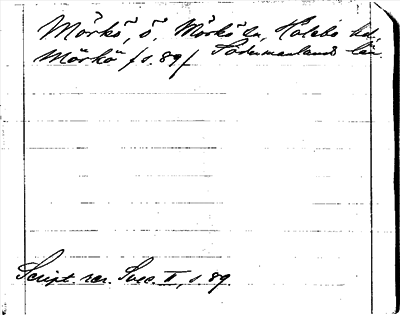 Mörkö, ö. Mörkö sn, Hölebo hd,
Mörkö /s. 89/ Södermanlands län.
Script. rer. Svec. II, s. 89.